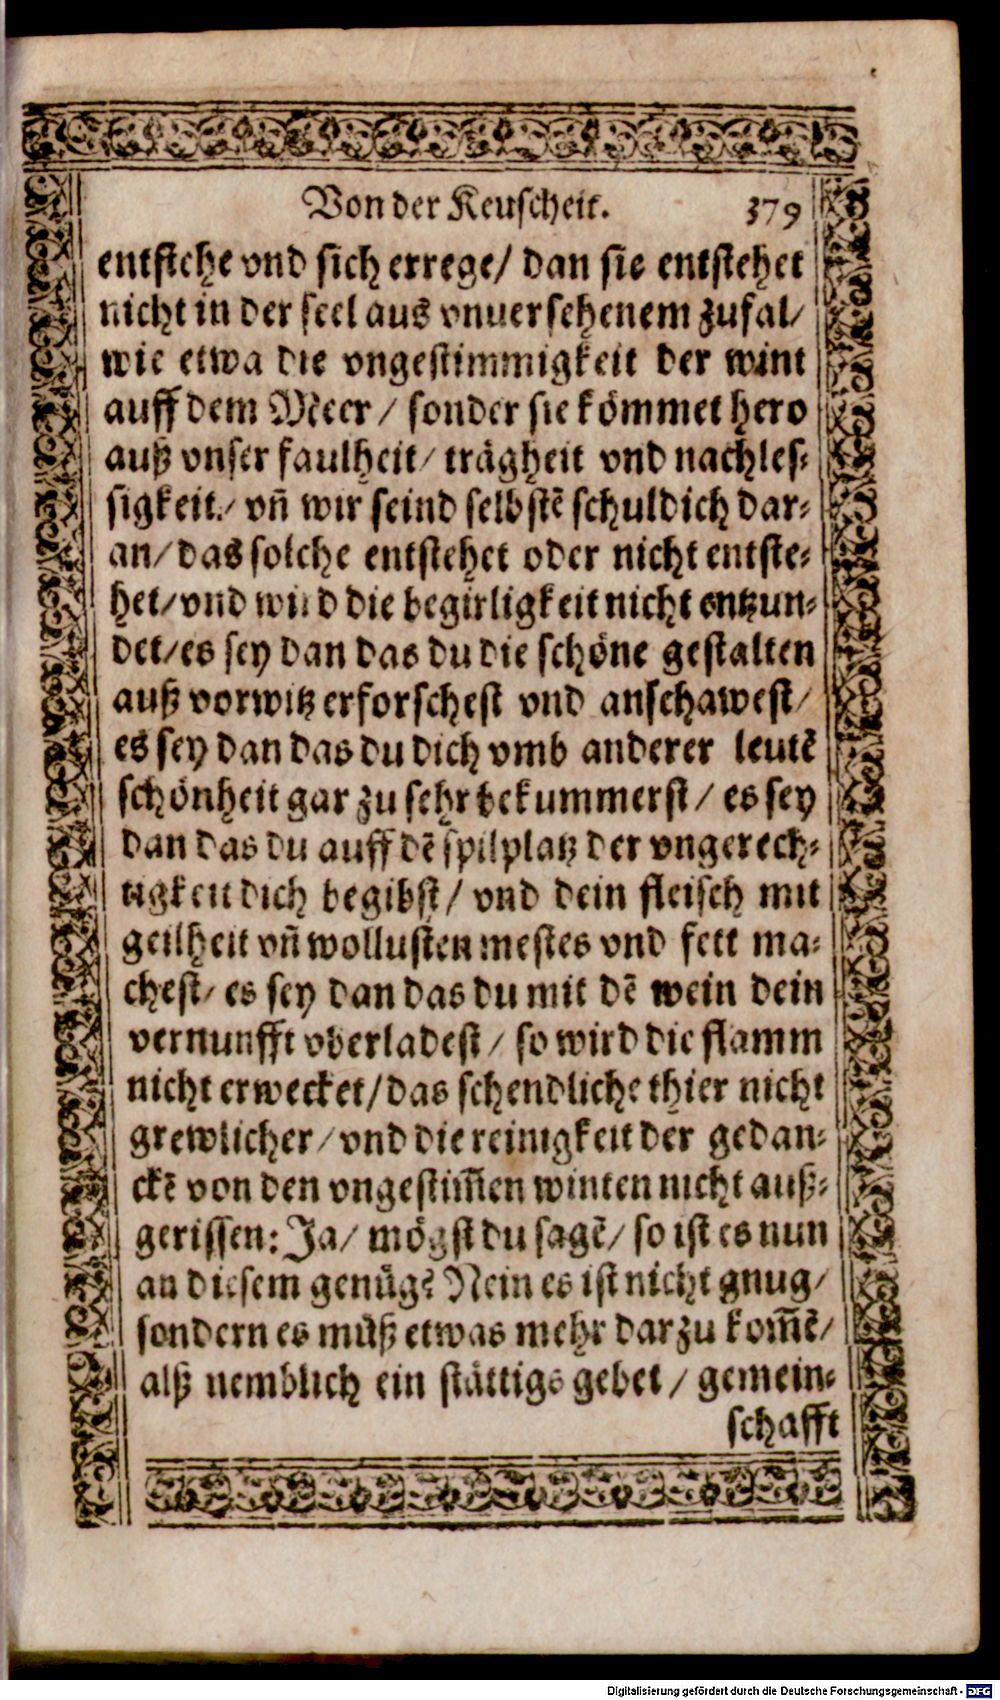 Von der Keuscheit. 379
entstehe vnd sich errege/ dan sie entstehet
nicht in der seel aus vnuersehenem zufal/
wie etwa die vngestimmigkeit der wint
auff dem Meer / sonder sie kömmet hero
auß vnser faulheit/ trägheit vnd nachles-
sigkeit/ vn̄ wir seind selbstē schuldich dar-
an/ das solche entstehet oder nicht entste-
het/ vnd wird die begirligkeit nicht entzun-
det/ es sey dan das du die schöne gestalten
auß vorwitz erforschest vnd anschawest/
es sey dan das du dich vmb anderer leutē
schönheit gar zu sehr bekummerst/ es sey
dan das du auff dē spilplatz der vngerech-
tigkeit dich begibst/ vnd dein fleisch mit
geilheit vn̄ wollusten mestes vnd fett ma-
chest/ es sey dan das du mit dē wein dein
vernunfft vberladest/ so wird die flamm
nicht erwecket/ das schendliche thier nicht
grewlicher/ vnd die reinigkeit der gedan-
ckē von den vngestim̄en winten nicht auß-
gerissen: Ja/ mögst du sagē/ so ist es nun
an diesem genüg? Nein es ist nicht gnug/
sondern es müß etwas mehr darzu kom̄ē/
alß nemblich ein stättigs gebet / gemein-
schafft
Digitalisierung gefördert durch die Deutsche Forschungsgemeinschaft - DFG